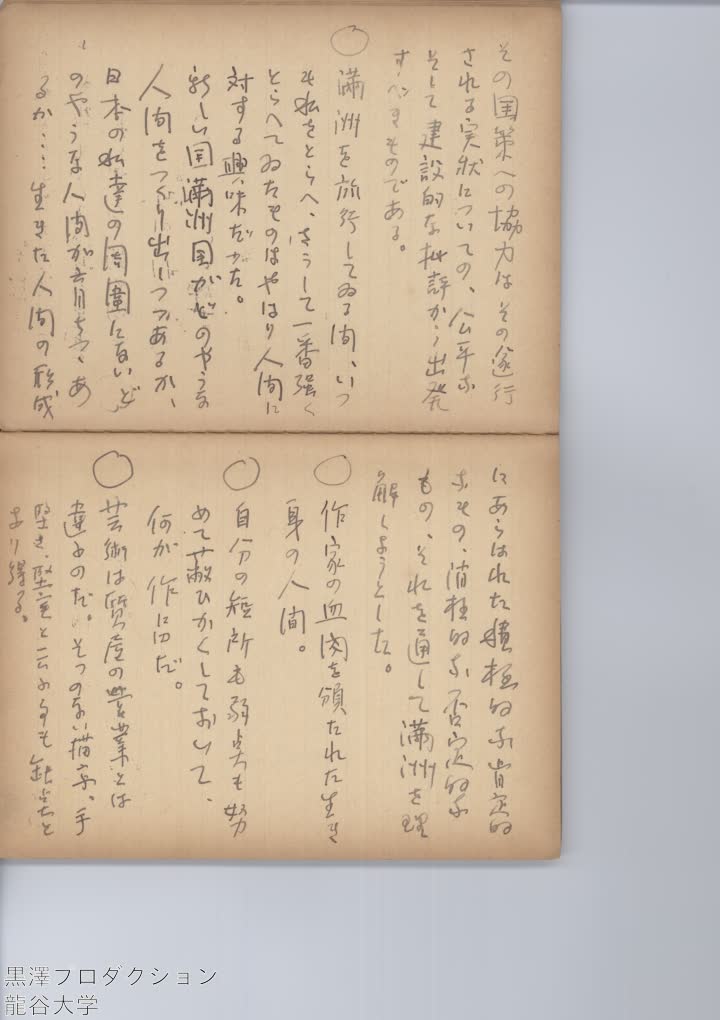 その国策への協力はその遂行
される実状についての、公平な
そして建設的な批評から出発
すべきものである。
○
満洲を旅行してゐる間、いつ
も私をとらへ、さうして一番強く
とらへてゐたものはやはり人間に
対する興味だった。
新しい国満洲国がどのやうな
人間をつくり出しつつあるか、
日本の私達の周囲にないど
のやうな人間が育ちつゝあ
るか…生きた人間の形成
にあらはれた積極的な肯定的
なもの、消極的な否定的な
もの、それを通して満洲を理
解しようとした。
○
作家の血肉を頒たれた生き
身の人間。
○
自分の短所も弱点も努
めて蔽ひかくしておいて、
何が作につだ。
○
芸術は質屋の営業とは
違ふのだ。そつのない描写。手
堅き、堅実と云ふ事も缺点と
なり得る。
黒澤プロダクション
龍谷大学